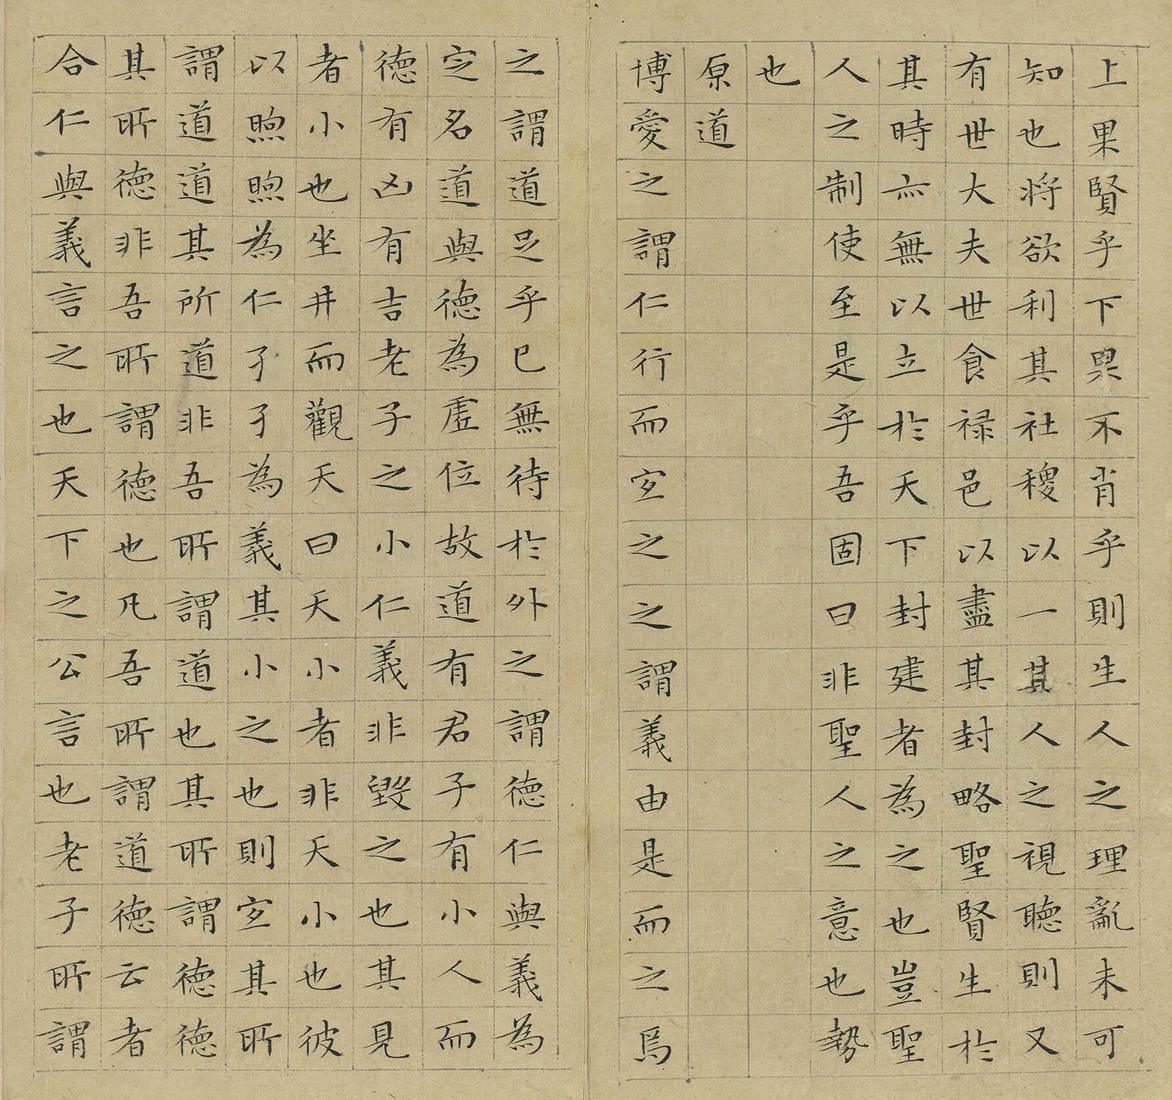 上果賢乎下果不肖乎則生人之理亂未可
知也將欲利其社稷以一其人之視聽則又
有世大夫世食祿邑以盡其封略聖賢生於
其時亦無以立於天下封建者為之也豈聖
人之制使至是乎吾固曰非聖人之意也勢
也
原道
博愛之謂仁行而宜之之謂義由是而之焉
之謂道足乎已無待於外之謂德仁與義為
定名道與德為虛位故道有君子有小人而
德有凶有吉老子之小仁義非毀之也其見
者小也坐井而觀天曰天小者非天小也彼
以煦煦為仁孑孑為義其小之也則宜其所
謂道道其所道非吾所謂道也其所謂德德
其所德非吾所謂德也凡吾所謂道德云者
合仁與義言之也天下之公言也老子所謂